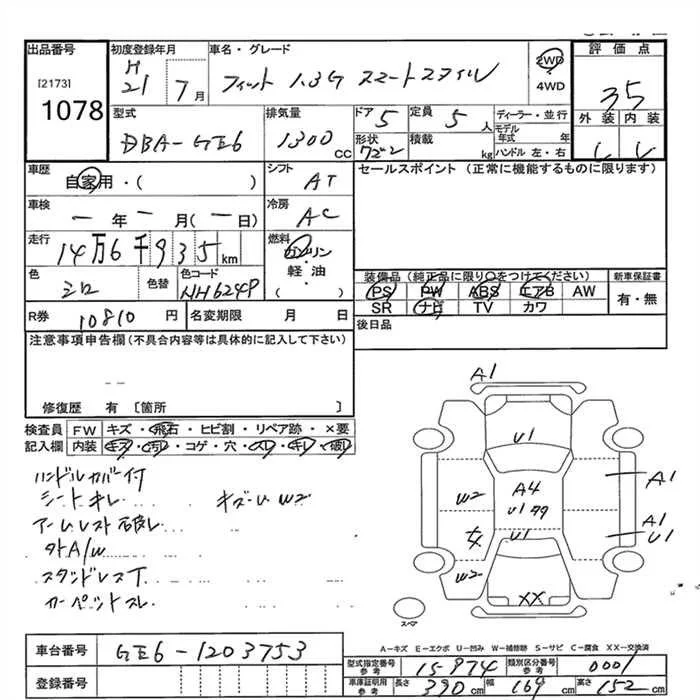 出品番号
[2173]
1078
初度登録年月
H
21 7月
車名・グレード
フィット 1.3G スマートスタイル
2WD
4WD
評価点
3.5
外装 内装
型式
DBA-GE6
排気量
1300 CC
ドア 5
定員 5 人
形状
積載 kg
ディーラー・並行
モデル年式 年
ハンドル 左・右
車歴
自家用・( )
シフト
AT
セールスポイント (正常に機能するものに限ります)
車検
ー年ー月(ー日)
冷房
AC
走行
14万6千935km
燃料
ガソリン
軽・油
( )
色
シロ
色替
色コード
NH624P
装備品(純正品に限り○をつけてください)
PS PW ABS エアB AW
SR ナビ TV カワ
新車保証書
有・無
R券 10810 円
名変期限 月 日
後日品
注意事項申告欄(不具合内容等は具体的に記入して下さい)
修復歴 有 〔箇所 〕
検査員 FW キズ・飛石・ヒビ割・リペア跡・×要
記入欄 内装 キズ・汚レ・コゲ・穴・スレ・キレ・破レ
ハンドルカバー付
シートキレ キズ・U W2
アームレスト破レ
社外A/W
スタンドレス丁
カーペットスレ
A1
U1
A4
U1
U1
W2
W2
A1
A1
U1
XX
スペア
A-キズ E-エクボ U-凹み W-補修跡 S-サビ C-腐食 XX-交換済
車台番号 GE6-1203753
登録番号
型式指定番号 参考 15974
類別区分番号 参考 0001
車庫証明用 参考 長さ 390 cm 幅 169 cm 高さ 152 cm